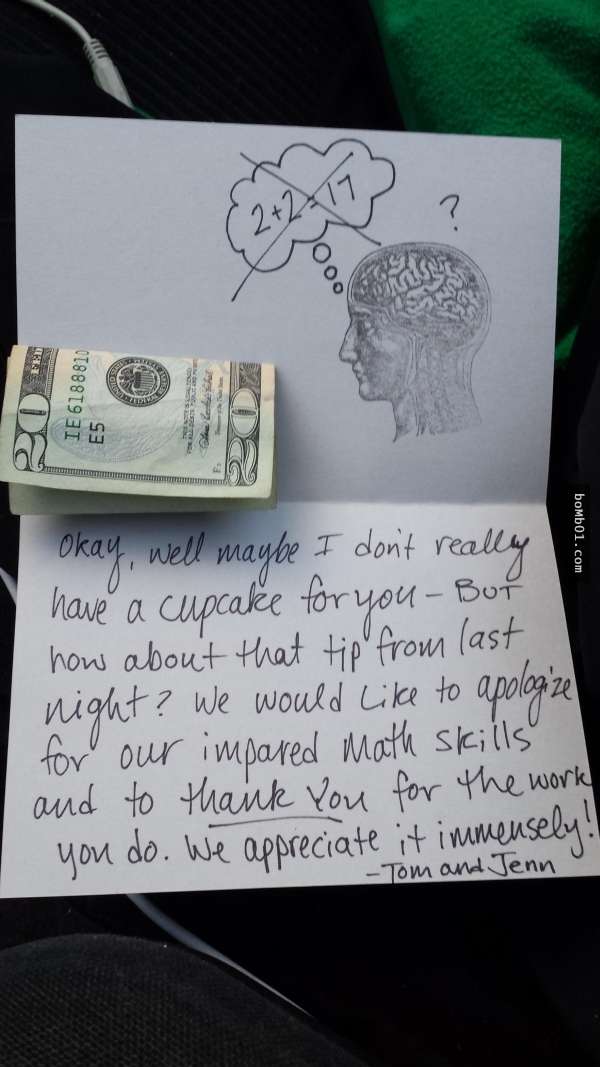 2+2=17
?
20
FED
IE6188810
E5
20
bomb01.com
Okay, well maybe I don't really
have a cupcake for you - BUT
how about that tip from last
night? We would like to apologize
for our impared Math skills
and to thank you for the work
you do. We appreciate it immensely!
-Tom and Jenn